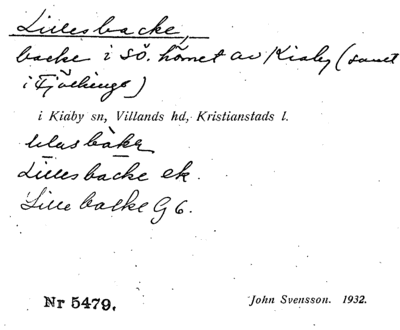 Lillesbacke,
backe i sö. hörnet av Kiaby (samt
i Fjälkinge)
i Kiaby sn, Villands hd, Kristianstads l.
Lillesbacke ek.
Lille backe G 6.
Nr 5479.
John Svensson. 1932.